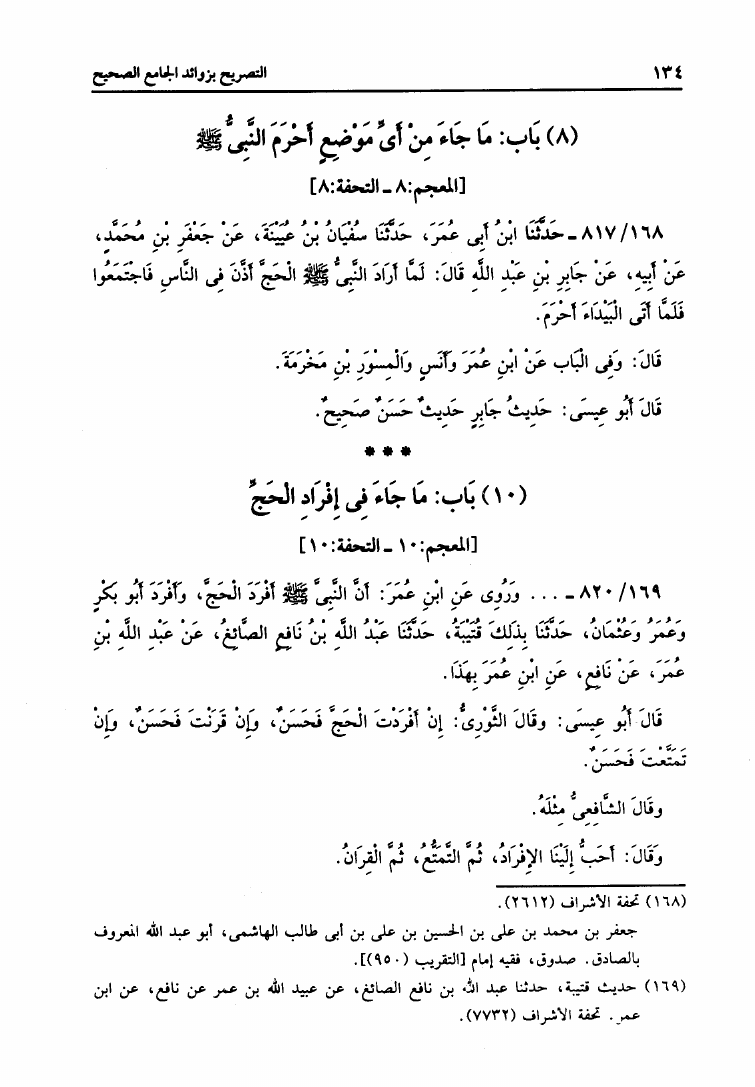 ١٣٤ التصريح بزوائد الجامع الصحيح
(٨) بَاب: مَا جَاءَ مِنْ أَىِّ مَوْضِعٍ أَحْرَمَ النَّبِىُّ ﷺ
[المعجم:٨ ـ التحفة:٨]
٨١٧/١٦٨ ـ حَدَّثَنَا ابْنُ أَبِى عُمَرَ، حَدَّثَنَا سُفْيَانُ بْنُ عُيَيْنَةَ، عَنْ جَعْفَرِ بْنِ مُحَمَّدٍ،
عَنْ أَبِيهِ، عَنْ جَابِرِ بْنِ عَبْدِ اللَّهِ قَالَ: لَمَّا أَرَادَ النَّبِىُّ ﷺ الْحَجَّ أَذَّنَ فِى النَّاسِ فَاجْتَمَعُوا
فَلَمَّا أَتَى الْبَيْدَاءَ أَحْرَمَ.
قَالَ: وَفِى الْبَابِ عَنْ ابْنِ عُمَرَ وَأَنَسٍ وَالْمِسْوَرِ بْنِ مَخْرَمَةَ.
قَالَ أَبُو عِيسَى: حَدِيثُ جَابِرٍ حَدِيثٌ حَسَنٌ صَحِيحٌ.
* * *
(١٠) بَاب: مَا جَاءَ فِى إِفْرَادِ الْحَجِّ
[المعجم:١٠ ـ التحفة:١٠]
٨٢٠/١٦٩ ـ ... وَرُوِى عَنِ ابْنِ عُمَرَ: أَنَّ النَّبِىَّ ﷺ أَفْرَدَ الْحَجَّ، وَأَفْرَدَ أَبُو بَكْرٍ
وَعُمَرُ وَعُثْمَانُ، حَدَّثَنَا بِذَلِكَ قُتَيْبَةُ، حَدَّثَنَا عَبْدُ اللَّهِ بْنُ نَافِعٍ الصَّائِغُ، عَنْ عَبْدِ اللَّهِ بْنِ
عُمَرَ، عَنْ نَافِعٍ، عَنِ ابْنِ عُمَرَ بِهَذَا.
قَالَ أَبُو عِيسَى: وقَالَ الثَّوْرِىُّ: إِنْ أَفْرَدْتَ الْحَجَّ فَحَسَنٌ، وَإِنْ قَرَنْتَ فَحَسَنٌ، وَإِنْ
تَمَتَّعْتَ فَحَسَنٌ.
وقَالَ الشَّافِعِىُّ مِثْلَهُ.
وَقَالَ: أَحَبُّ إِلَيْنَا الإِفْرَادُ، ثُمَّ التَّمَتُّعُ، ثُمَّ الْقِرَانُ.
(١٦٨) تحفة الأشراف (٢٦١٢).
جعفر بن محمد بن على بن الحسين بن على بن أبى طالب الهاشمى، أبو عبد الله المعروف
بالصادق. صدوق، فقيه إمام [التقريب (٩٥٠)].
(١٦٩) حديث قتيبة، حدثنا عبد الله بن نافع الصائغ، عن عبيد الله بن عمر عن نافع، عن ابن
عمر. تحفة الأشراف (٧٧٣٢).